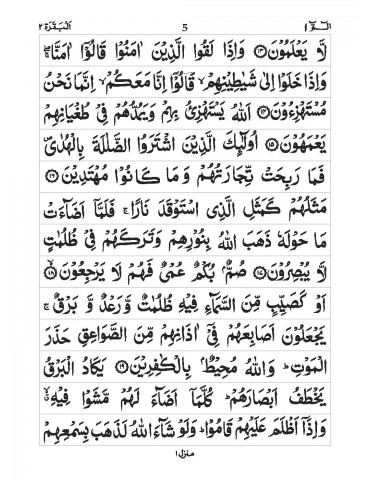 البقرة ٢ 5 الٓمّٓ ١
لَّا يَعْلَمُوْنَ ﴿۱۳﴾ وَاِذَا لَقُوا الَّذِيْنَ اٰمَنُوْا قَالُوْٓا اٰمَنَّا ۖۚ
وَاِذَا خَلَوْا اِلٰى شَيٰطِيْنِهِمْ ۙ قَالُوْٓا اِنَّا مَعَكُمْ ۙ اِنَّمَا نَحْنُ
مُسْتَهْزِءُوْنَ ﴿۱۴﴾ اَللّٰهُ يَسْتَهْزِئُ بِهِمْ وَيَمُدُّهُمْ فِيْ طُغْيَانِهِمْ
يَعْمَهُوْنَ ﴿۱۵﴾ اُولٰٓئِكَ الَّذِيْنَ اشْتَرَوُا الضَّلٰلَةَ بِالْهُدٰى ۪
فَمَا رَبِحَتْ تِّجَارَتُهُمْ وَمَا كَانُوْا مُهْتَدِيْنَ ﴿۱۶﴾
مَثَلُهُمْ كَمَثَلِ الَّذِى اسْتَوْقَدَ نَارًا ۚ فَلَمَّآ اَضَآءَتْ
مَا حَوْلَهٗ ذَهَبَ اللّٰهُ بِنُوْرِهِمْ وَتَرَكَهُمْ فِيْ ظُلُمٰتٍ
لَّا يُبْصِرُوْنَ ﴿۱۷﴾ صُمٌّۢ بُكْمٌ عُمْيٌ فَهُمْ لَا يَرْجِعُوْنَ ﴿۱۸﴾ ۙ
اَوْ كَصَيِّبٍ مِّنَ السَّمَآءِ فِيْهِ ظُلُمٰتٌ وَّرَعْدٌ وَّبَرْقٌ ۚ
يَجْعَلُوْنَ اَصَابِعَهُمْ فِيْٓ اٰذَانِهِمْ مِّنَ الصَّوَاعِقِ حَذَرَ
الْمَوْتِ ؕ وَاللّٰهُ مُحِيْطٌۢ بِالْكٰفِرِيْنَ ﴿۱۹﴾ يَكَادُ الْبَرْقُ
يَخْطَفُ اَبْصَارَهُمْ ؕ كُلَّمَآ اَضَآءَ لَهُمْ مَّشَوْا فِيْهِ ۙ
وَاِذَآ اَظْلَمَ عَلَيْهِمْ قَامُوْا ؕ وَلَوْ شَآءَ اللّٰهُ لَذَهَبَ بِسَمْعِهِمْ
منزل ١